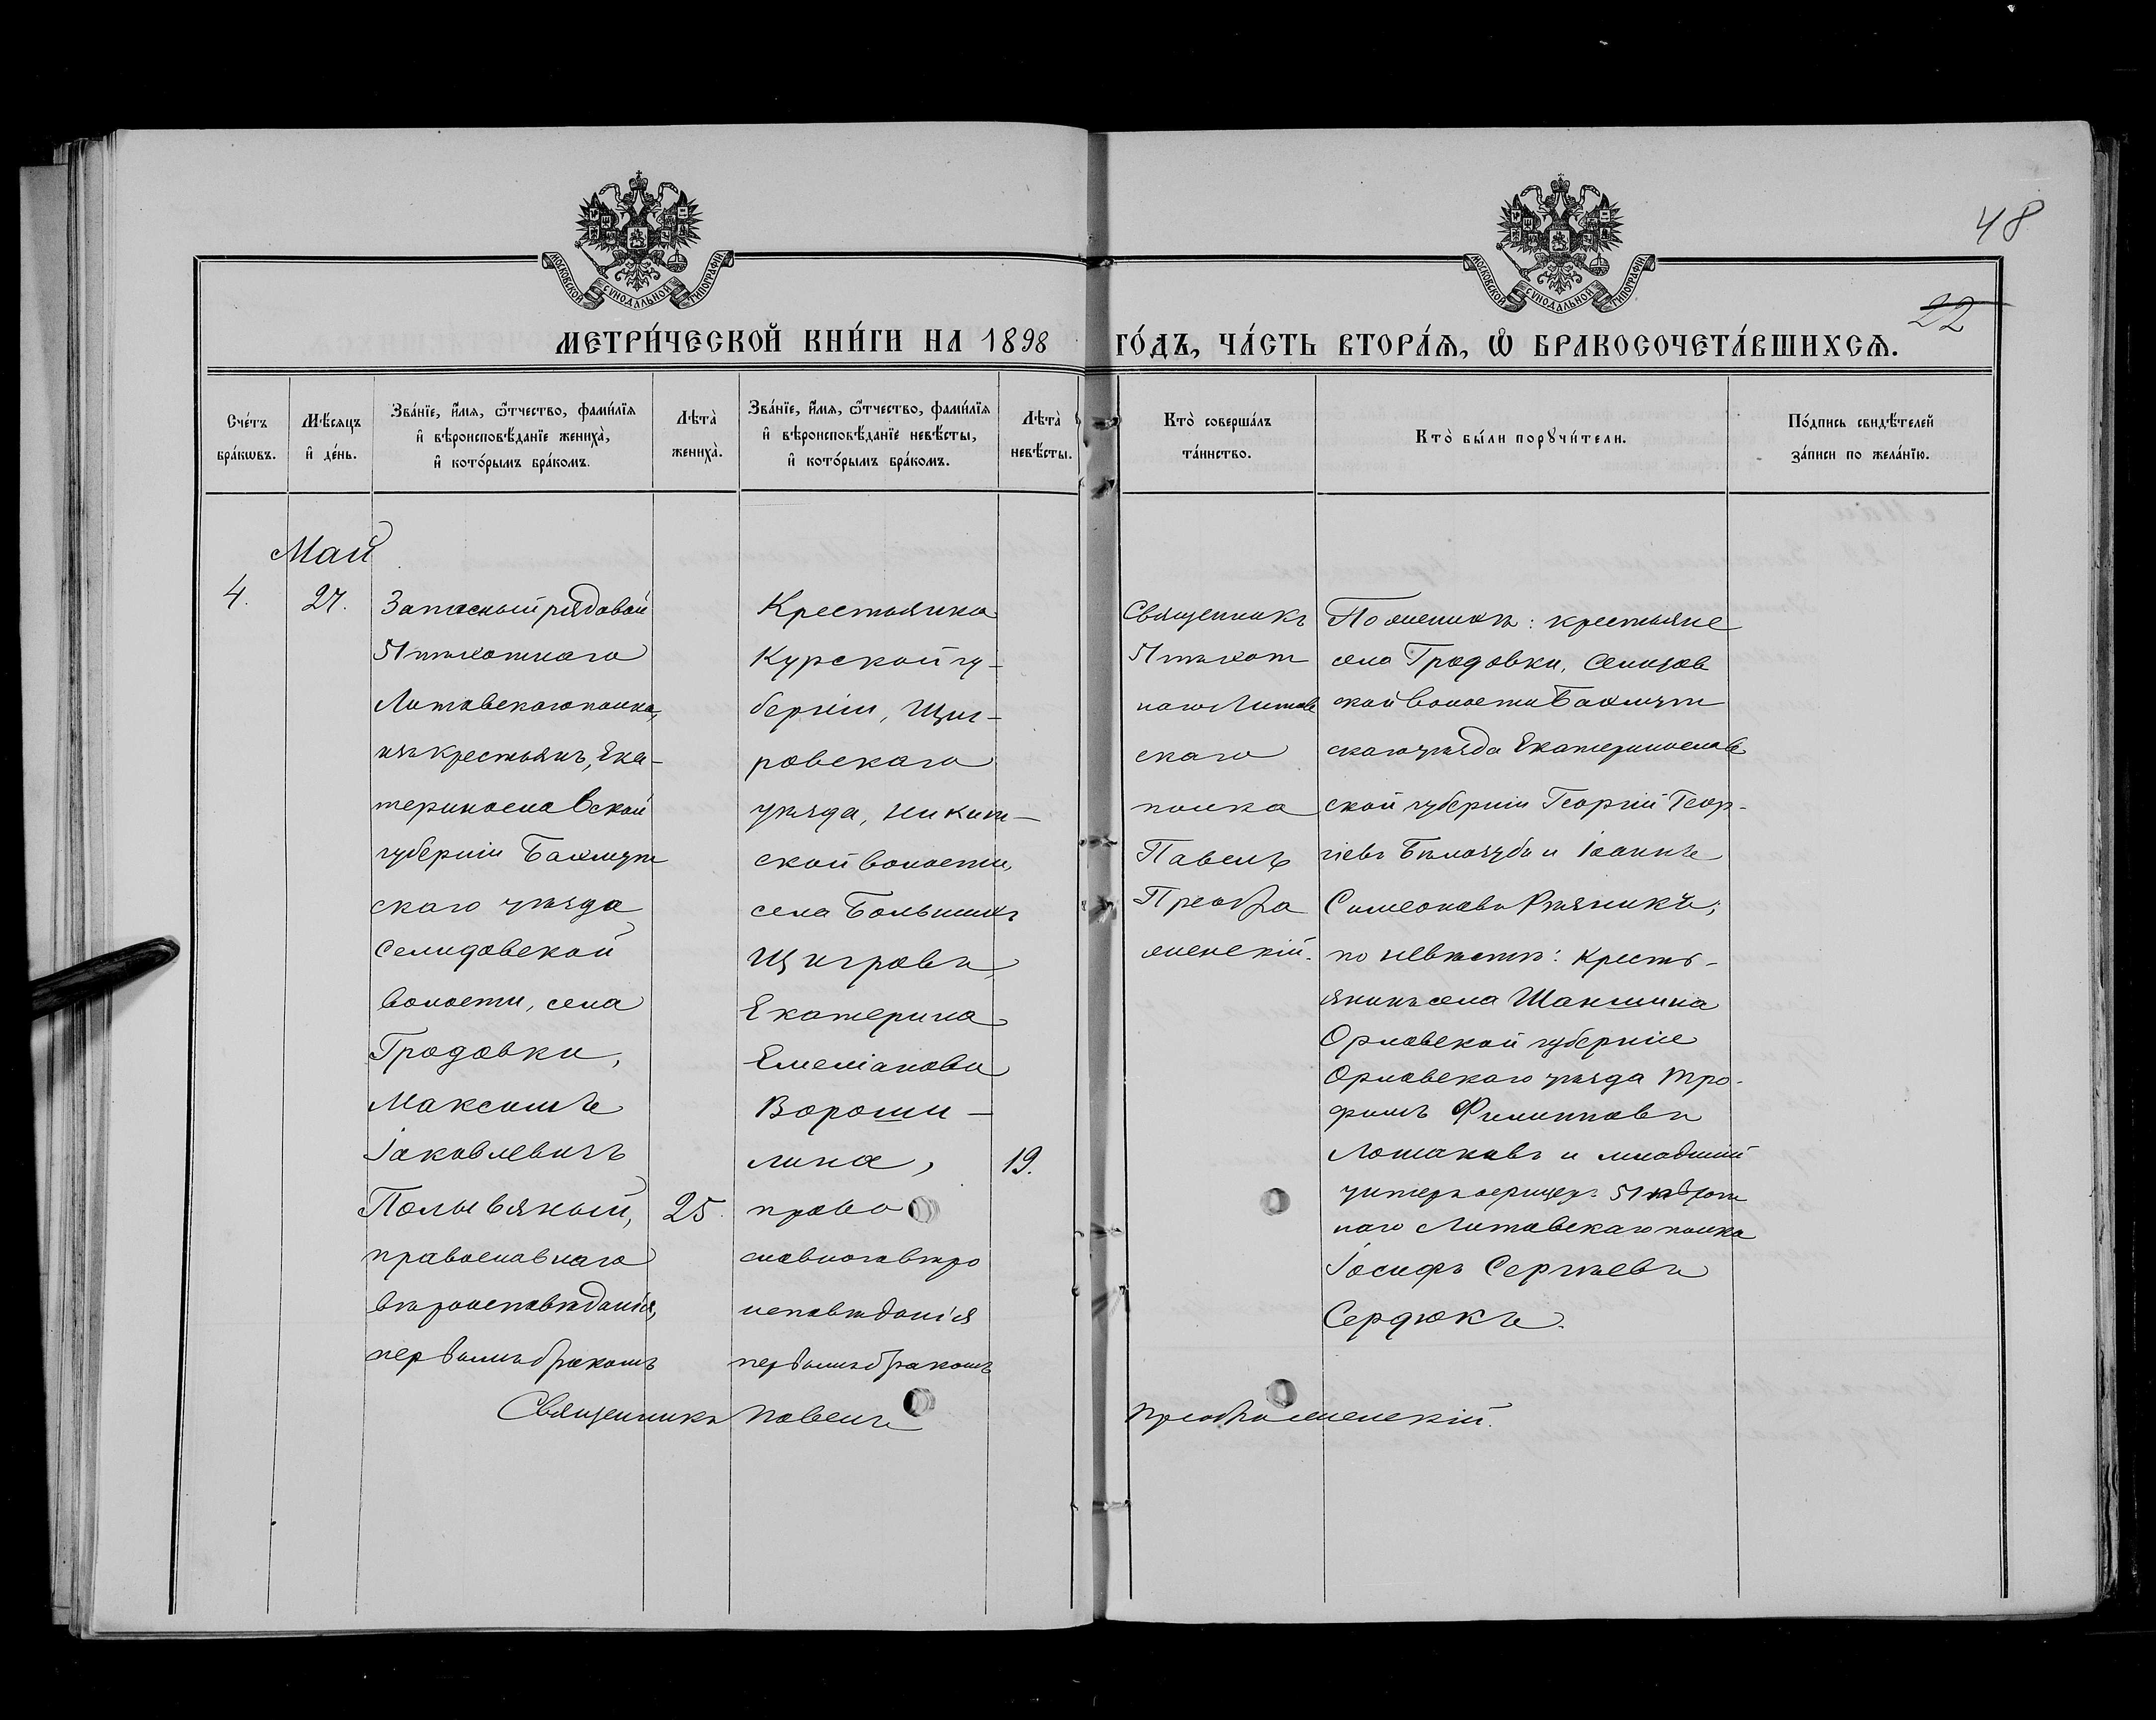 48
22
МОСКОВСКОЙ СѴНОДАЛЬНОЙ ТИПОГРАФІИ
МОСКОВСКОЙ СѴНОДАЛЬНОЙ ТИПОГРАФІИ
МЕТРИ́ЧЕСКОЙ КНИ́ГИ НА 1898 ГО́ДЪ, ЧА́СТЬ ВТОРА́Ѧ, Ѽ БРАКОСОЧЕТА́ВШИХСѦ.
Сче́тъ
бра́кѡвъ.
Мѣ́сяцъ
и҆ де́нь.
Зва́нїе, и҆́мѧ, ѻ҆́тчество, фами́лїѧ
и҆ вѣроисповѣ́данїе жениха̀,
и҆ кото́рымъ бра́комъ.
Лѣта̀
жениха̀.
Зва́нїе, и҆́мѧ, ѻ҆́тчество, фами́лїѧ
и҆ вѣроисповѣ́данїе невѣ́сты,
и҆ кото́рымъ бра́комъ.
Лѣта̀
невѣ́сты.
Кто̀ соверша́лъ
та́инство.
Кто̀ бы́ли порꙋчи́тели.
По́дпись свидѣ́телей
за́писи по жела́нїю.
Май
4.
27.
Запасный рядовой
51 пѣхотнаго
Литовскаго полка,
изъ крестьянъ, Ека-
теринославской
губерніи Бахмут
скаго уѣзда
Селидовской
волости, села
Гродовки,
Максимъ
Іаковлевичъ
Полывяный,
православнаго
вѣроисповѣданія,
первымъ бракомъ
25.
Крестьянка
Курской гу-
берніи, Щиг-
ровскаго
уѣзда, Никит-
ской волости,
села Большихъ
Щигровъ
Екатерина
Емеліанова
Вороши-
лина,
право
славного вѣро
исповѣданія
первымъ бракомъ
19.
Священникъ
51 пѣхот
наго Литов
скаго
полка
Павелъ
Преобра
женскій.
По женихѣ: крестьяне
села Гродовки, Селидов
ской волости Бахмут
скаго уѣзда Екатеринослав
ской губерніи Георгій Геор-
гіевъ Бѣлозубъ и Іоаннъ
Симеоновъ
по невѣстѣ: кресть-
янинъ села Шакшина
Орловской губерніи
Орловскаго уѣзда Тро-
фимъ Филипповъ
Лошаковъ и младшій
унтеръ офицеръ 51 пѣхот
наго Литовскаго полка
Іосифъ Сергѣевъ
Сердюкъ.
Священникъ Павелъ Преображенскій.